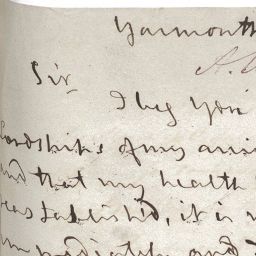 Yarmouth
Sir
I beg You
Lordships of my arri
and that my health
reestablished, it is
immediately and